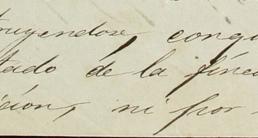 rugendose, conqu
tado de la finca
ición, ni por